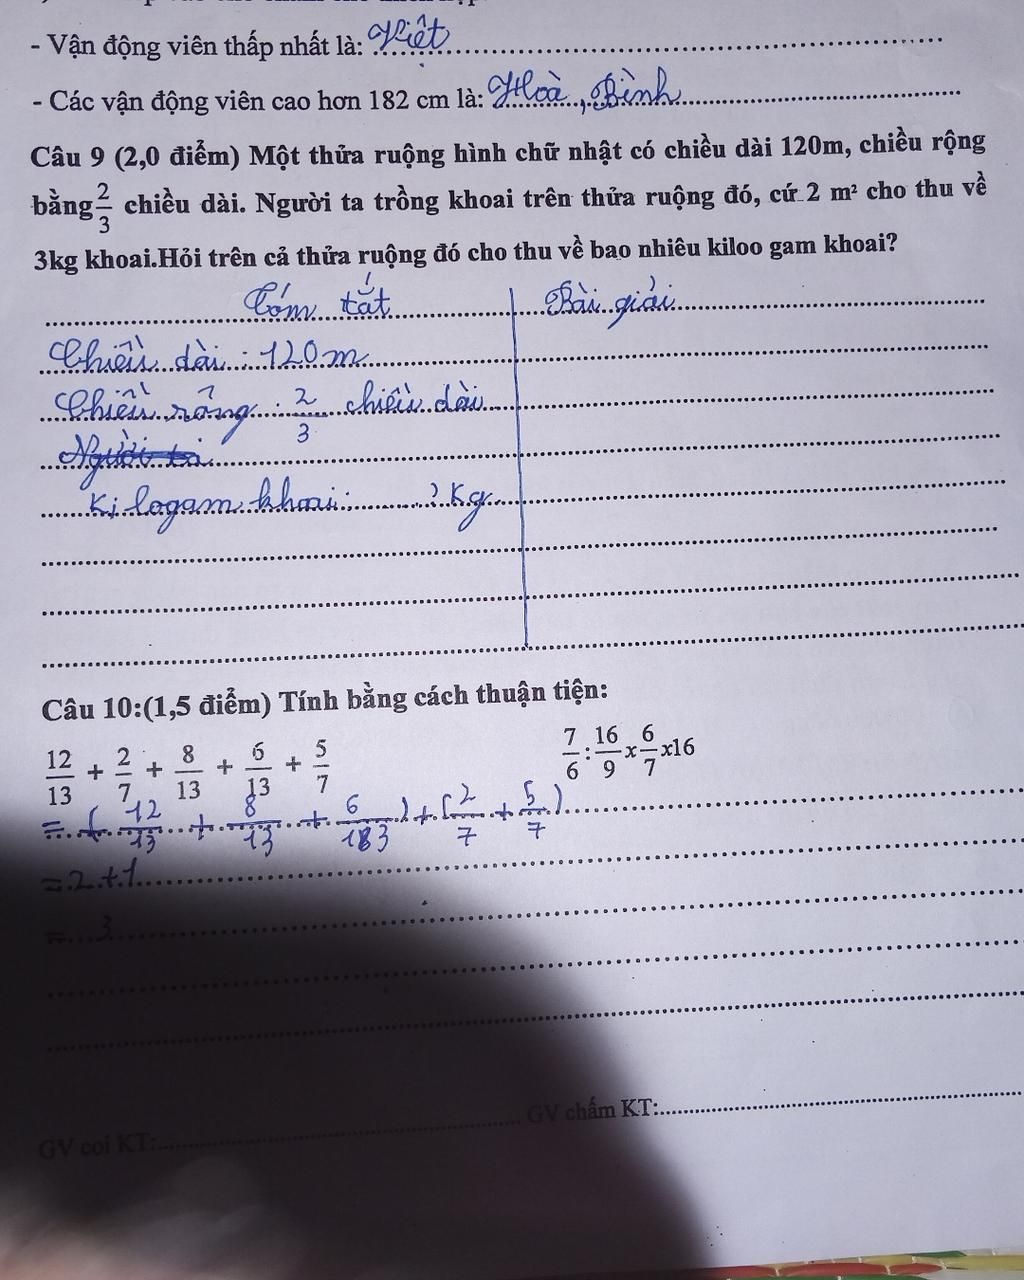 - Vận động viên thấp nhất là: Việt
- Các vận động viên cao hơn 182 cm là: Hoà, Bình
Câu 9 (2,0 điểm) Một thửa ruộng hình chữ nhật có chiều dài 120m, chiều rộng
bằng 2/3 chiều dài. Người ta trồng khoai trên thửa ruộng đó, cứ 2 m² cho thu về
3kg khoai.Hỏi trên cả thửa ruộng đó cho thu về bao nhiêu kiloo gam khoai?
Tóm tắt Bài giải
Chiều dài : 120m
Chiều rộng : 2/3 chiều dài
Người ta
Ki logam khoai: ......? Kg
Câu 10:(1,5 điểm) Tính bằng cách thuận tiện:
12/13 + 2/7 + 8/13 + 6/13 + 5/7 7/6 : 16/9 x 6/7 x16
= ( 12/13 + 8/13 + 6/13 ) + ( 2/7 + 5/7 )
= 2 + 1
= 3
GV coi KT: GV chấm KT: